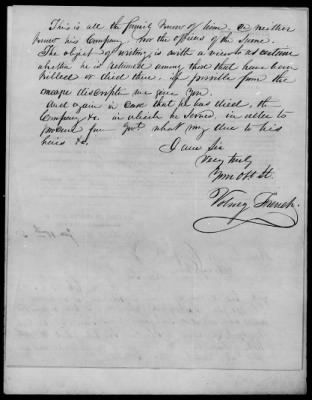 This is all the family know of him, or neither
know his Company, nor the officers of the Same.
The object of writing is with a view to ascertain
whether he is returned among those that have been
killed or died there. if possible from the
meagre discriptn we give you.
And again in case that he has died, the
Company &c. in which he served, in order to
procure from Govt what may be due to his
heirs &c.
I am Sir
Very truly
Your Obt St
Volney French